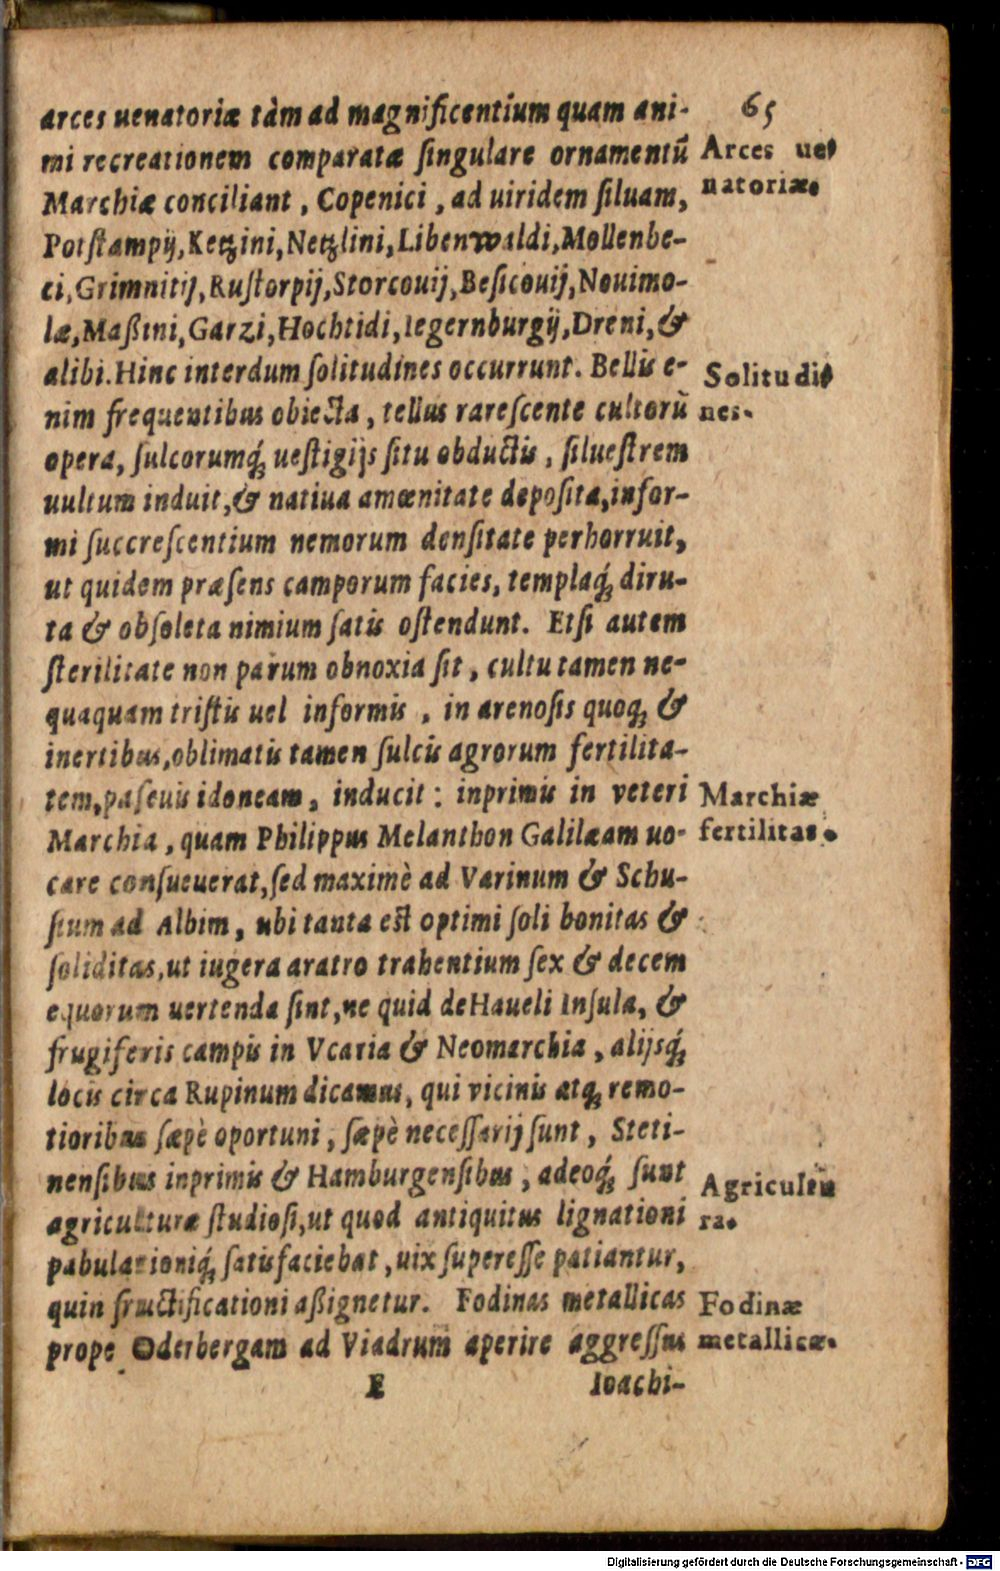 65
arces uenatoriæ tàm ad magnificentium quam ani-
mi recreationem comparatæ ſingulare ornamentū
Marchiæ conciliant, Copenici, ad uiridem ſiluam,
Potſtampij, Ketzini, Netzlini, Libenwaldi, Mollenbe-
ci, Grimnitij, Ruſtorpij, Storcouij, Beſicouij, Nouimo-
læ, Maßini, Garzi, Hochtidi, legernburgij, Dreni, &
alibi. Hinc interdum ſolitudines occurrunt. Bellis e-
nim frequentibus obiecta, tellus rareſcente cultorū
opera, ſulcorumq́; ueſtigijs ſitu obductis, ſilueſtrem
uultum induit, & natiua amœnitate depoſita, infor-
mi ſuccreſcentium nemorum denſitate perhorruit,
ut quidem præſens camporum facies, templaq́; diru-
ta & obſoleta nimium ſatis oſtendunt. Etſi autem
ſterilitate non parum obnoxia ſit, cultu tamen ne-
quaquam triſtis uel informis, in arenoſis quoq; &
inertibus, oblimatis tamen ſulcis agrorum fertilita-
tem, paſcuis idoneam, inducit: inprimis in veteri
Marchia, quam Philippus Melanthon Galilæam uo-
care conſueuerat, ſed maximè ad Varinum & Schu-
ſium ad Albim, ubi tanta eſt optimi ſoli bonitas &
ſoliditas, ut iugera aratro trahentium ſex & decem
equorum uertenda ſint, ne quid de Haueli Inſula, &
frugiferis campis in Vcaria & Neomarchia, alijsq́;
locis circa Rupinum dicamus, qui vicinis atq; remo-
tioribus ſæpè oportuni, ſæpè neceſſarij ſunt, Steti-
nenſibus inprimis & Hamburgenſibus, adeoq́; ſunt
agriculturæ ſtudioſi, ut quod antiquitus lignationi
pabulationiq́; ſatisfaciebat, uix ſupereſſe patiantur,
quin fructificationi aßignetur. Fodinas metallicas
prope Oderbergam ad Viadrum aperire aggreſſus
E Ioachi-
Arces ue-
natoriæ.
Solitudi-
nes.
Marchiæ
fertilitas.
Agricultu
ra.
Fodinæ
metallicæ.
Digitalisierung gefördert durch die Deutsche Forschungsgemeinschaft - DFG